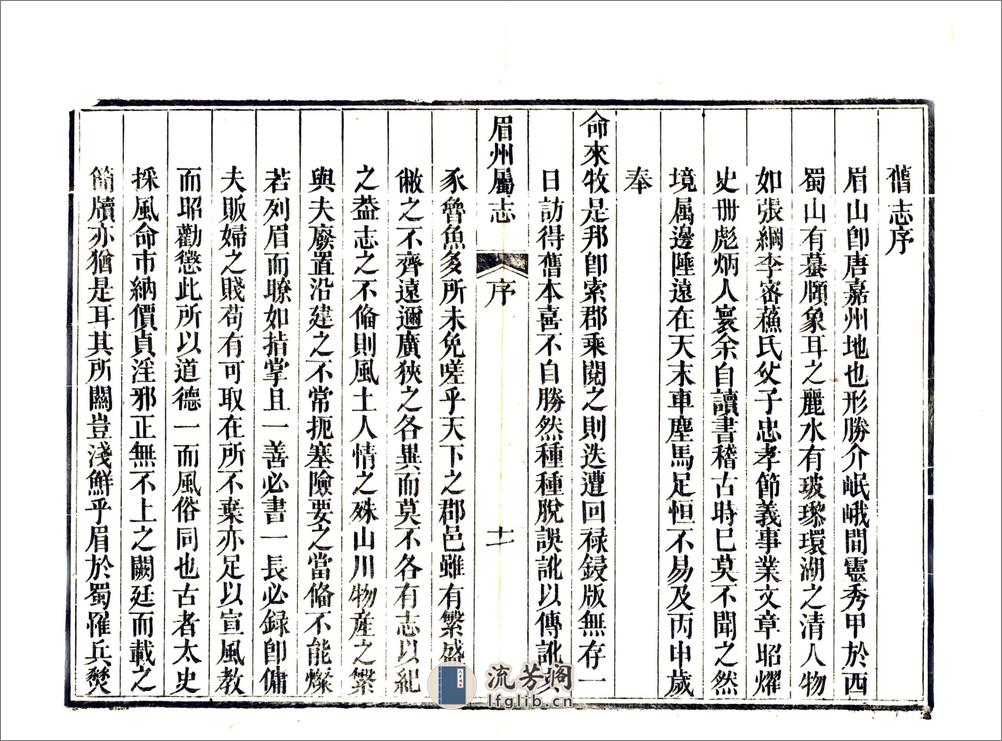 舊志序
眉山卽唐嘉州地也形勝介岷峨間靈秀甲於西
蜀山有蟇頤象耳之麗水有玻瓈環湖之清人物
如張綱李密蘓氏父子忠孝節義事業文章昭燿
史冊彪炳人寰余自讀書稽古時已莫不聞之然
境属邊陲遠在天末車塵馬足恒不易及丙申歲
奉
命來牧是邦卽索郡乘閱之則迭遭回禄鋟版無存一
日訪得舊本喜不自勝然種種脫誤訛以傳訛
眉州屬志
序
十一
豕魯魚多所未免嗟乎天下之郡邑雖有繁盛
敝之不齊遠邇廣狹之各異而莫不各有志以紀
之葢志之不俻則風土人情之殊山川物産之繁
與夫廢置沿建之不常扼塞險要之當俻不能燦
若列眉而瞭如指掌且一善必書一長必録卽傭
夫販婦之賤苟有可取在所不棄亦足以宣風教
而昭勸懲此所以道德一而風俗同也古者太史
採風命市納價貞淫邪正無不上之闕廷而載之
簡牘亦猶是耳其所關豈淺鮮乎眉於蜀罹兵燹
流芳阁
lfglib.cn